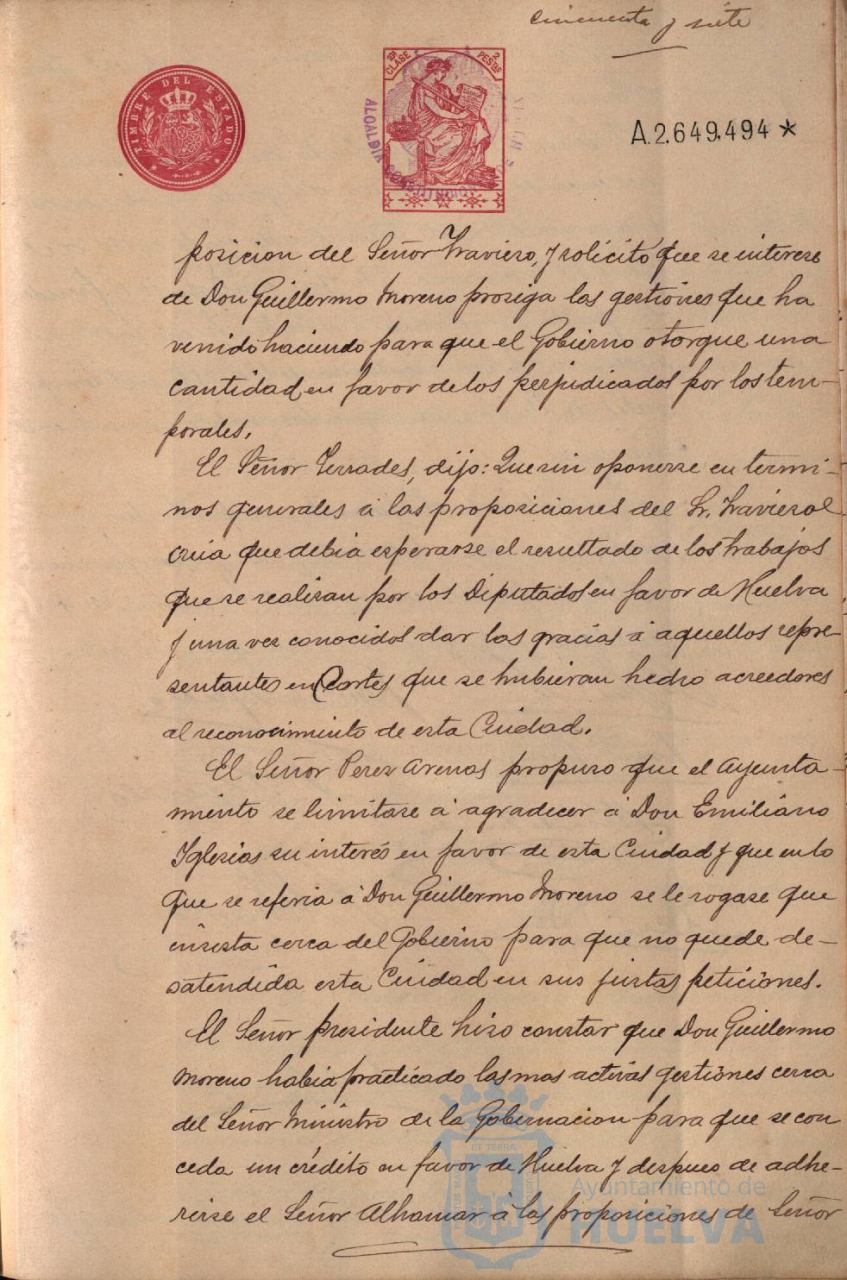 cincuenta y siete
TIMBRE DEL ESTADO
10ª CLASE 2 PESTAS
ALCALDIA CONSTITUCIONAL
A.2.649.494 *
posicion del Señor Traviero, y solicitó que se interese
de Don Guillermo Moreno prosiga las gestiones que ha
venido haciendo para que el Gobierno otorgue una
cantidad en favor de los perjudicados por los tem-
porales.
El Señor Terrades, dijo: Que sin oponerse en termi-
nos generales á las proposiciones del Sr. Traviero el
creia que debia esperarse el resultado de los trabajos
que se realizan por los Diputados en favor de Huelva
y una vez conocidos dar las gracias á aquellos repre-
sentantes en Cortes que se hubieran hecho acreedores
al reconocimiento de esta Ciudad.
El Señor Perez Arenas propuso que el Ayunta-
miento se limitase á agradecer á Don Emiliano
Iglesias su interés en favor de esta Ciudad y que en lo
que se referia á Don Guillermo Moreno se le rogase que
insista cerca del Gobierno para que no quede de-
satendida esta Ciudad en sus justas peticiones.
El Señor presidente hizo constar que Don Guillermo
Moreno habia practicado las mas activas gestiones cerca
del Señor Ministro de la Gobernacion para que se con
ceda un crédito en favor de Huelva y despues de adhe-
rirse el Señor Alhamar á las proposiciones de Señor
Ayuntamiento de
HUELVA